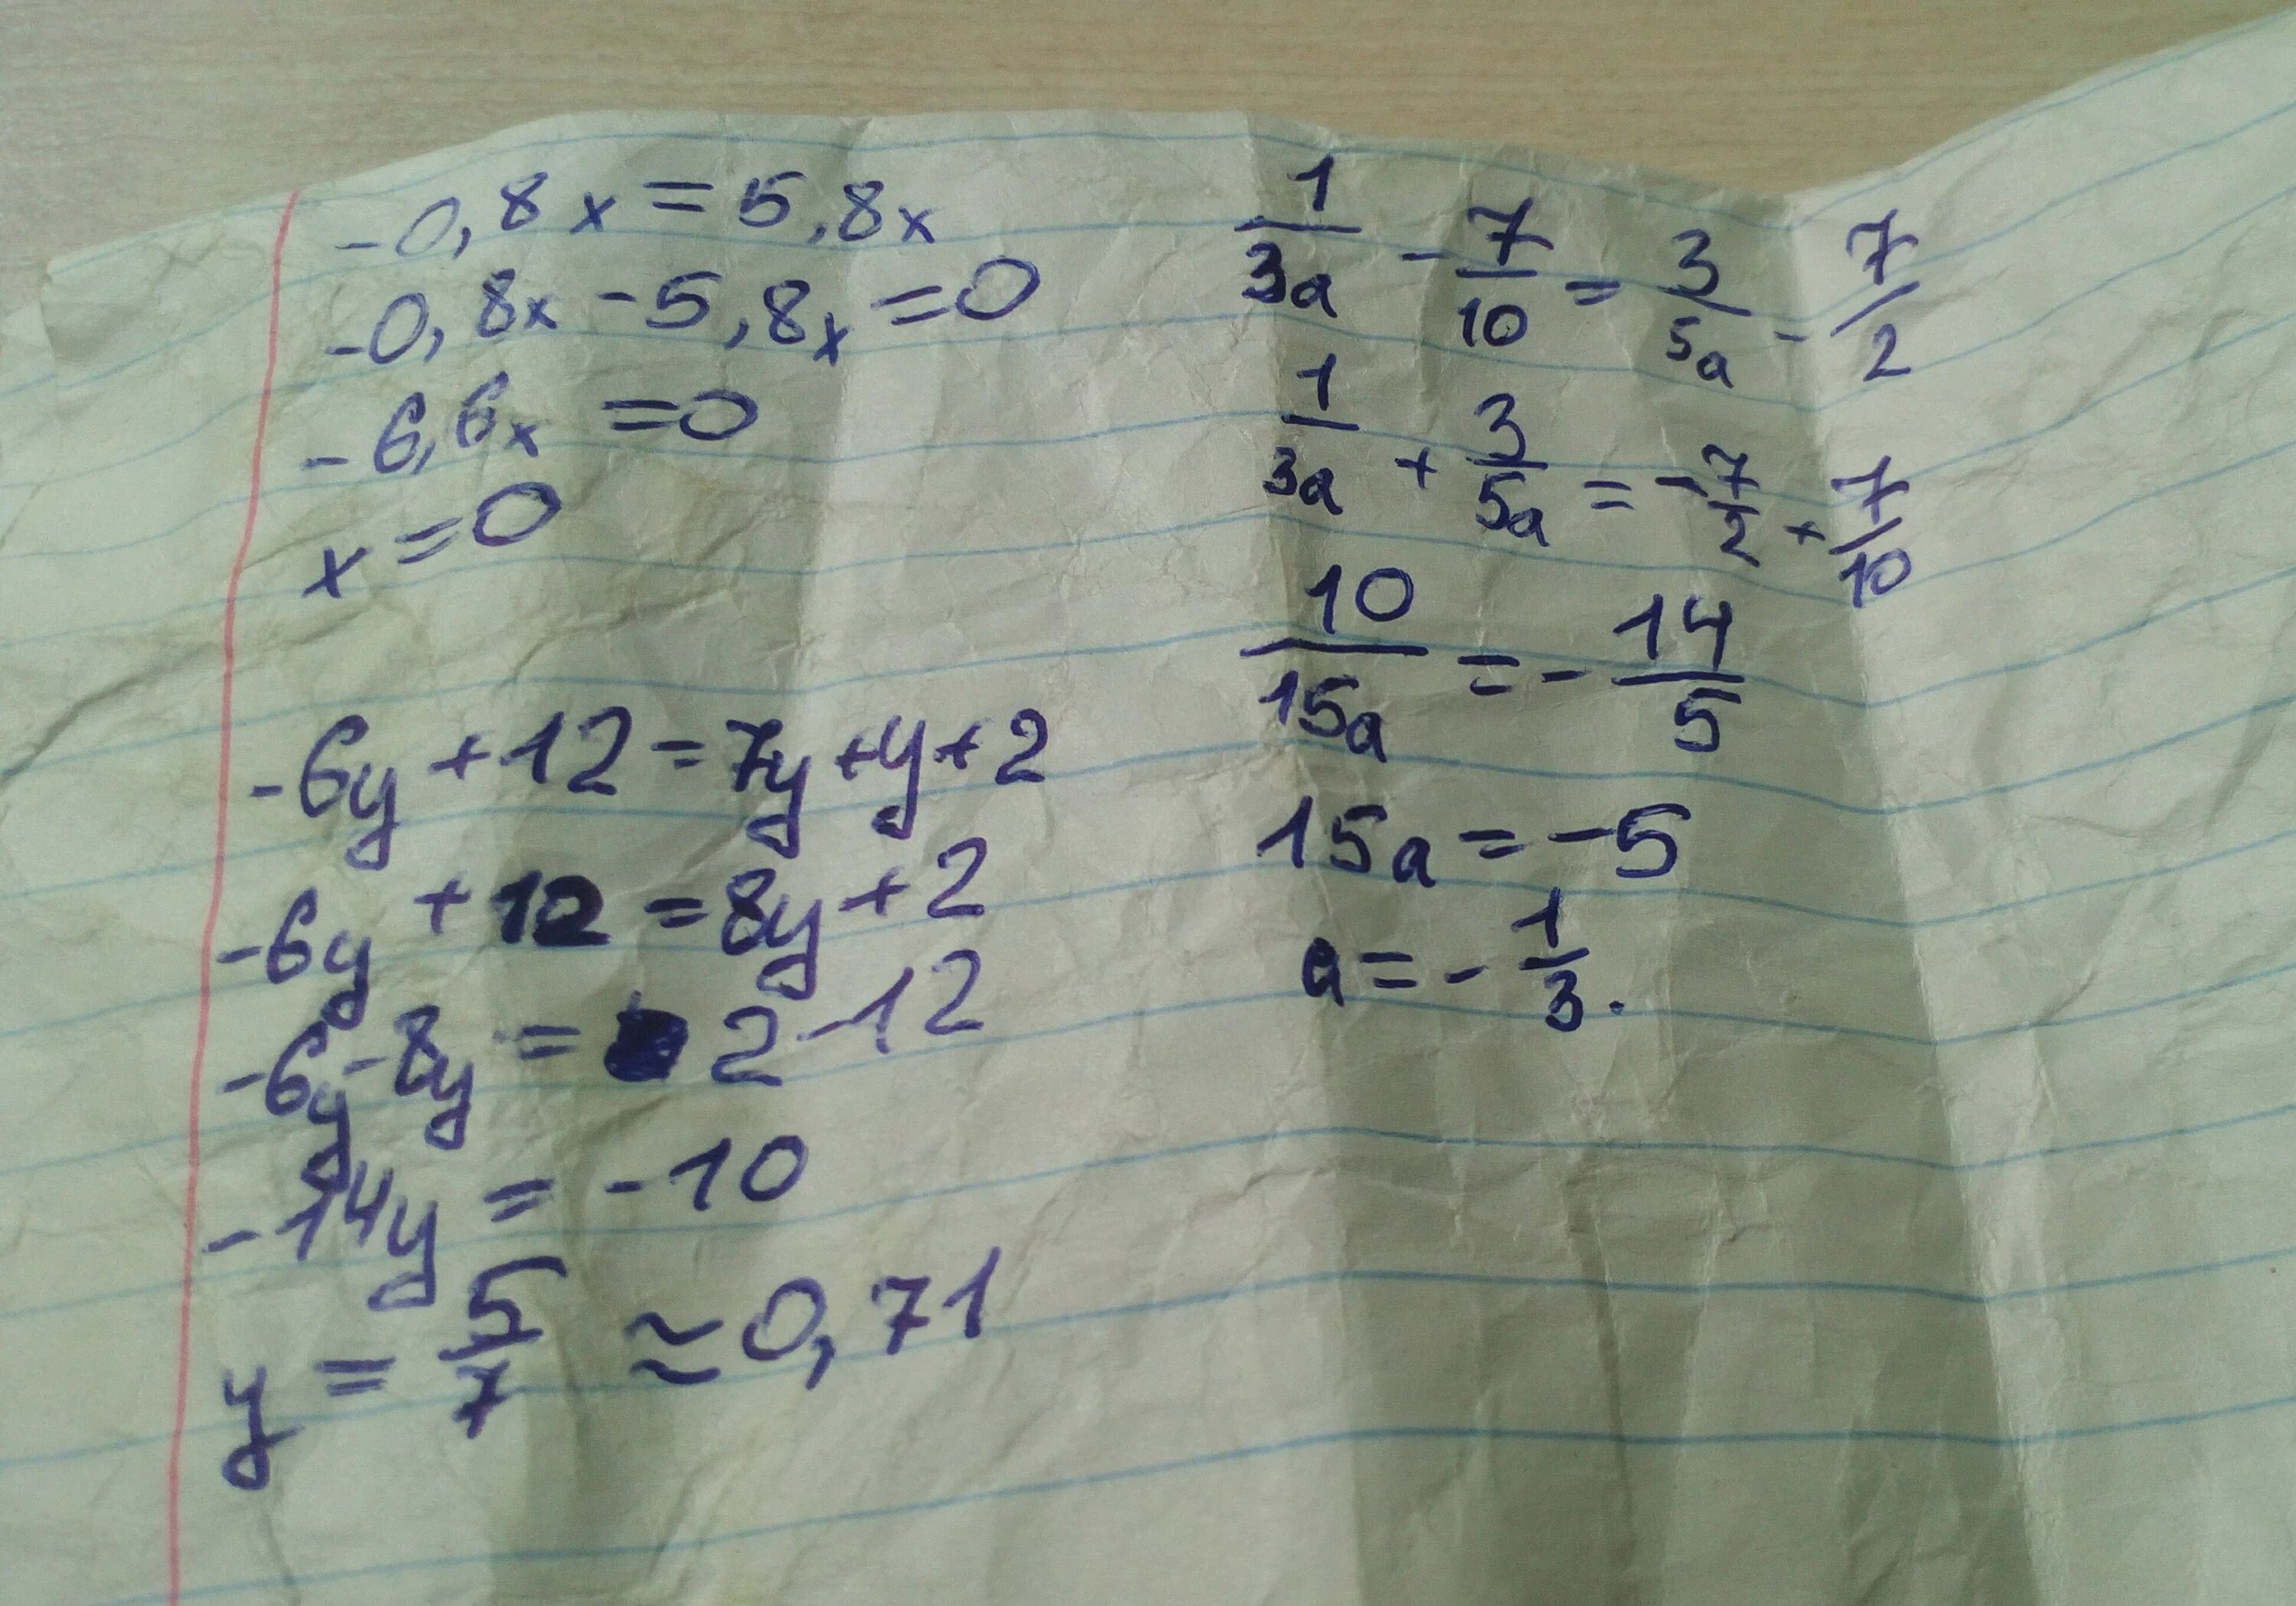 -0,8x=5,8x
-0,8x-5,8x=0
-6,6x=0
x=0
-6y+12=7y+y+2
-6y+12=8y+2
-6y-8y=2-12
-14y=-10
y=5/7≈0,71
1/3a-7/10=3/5a-7/2
1/3a+3/5a=-7/2+7/10
10/15a=-14/5
15a=-5
a=-1/3.